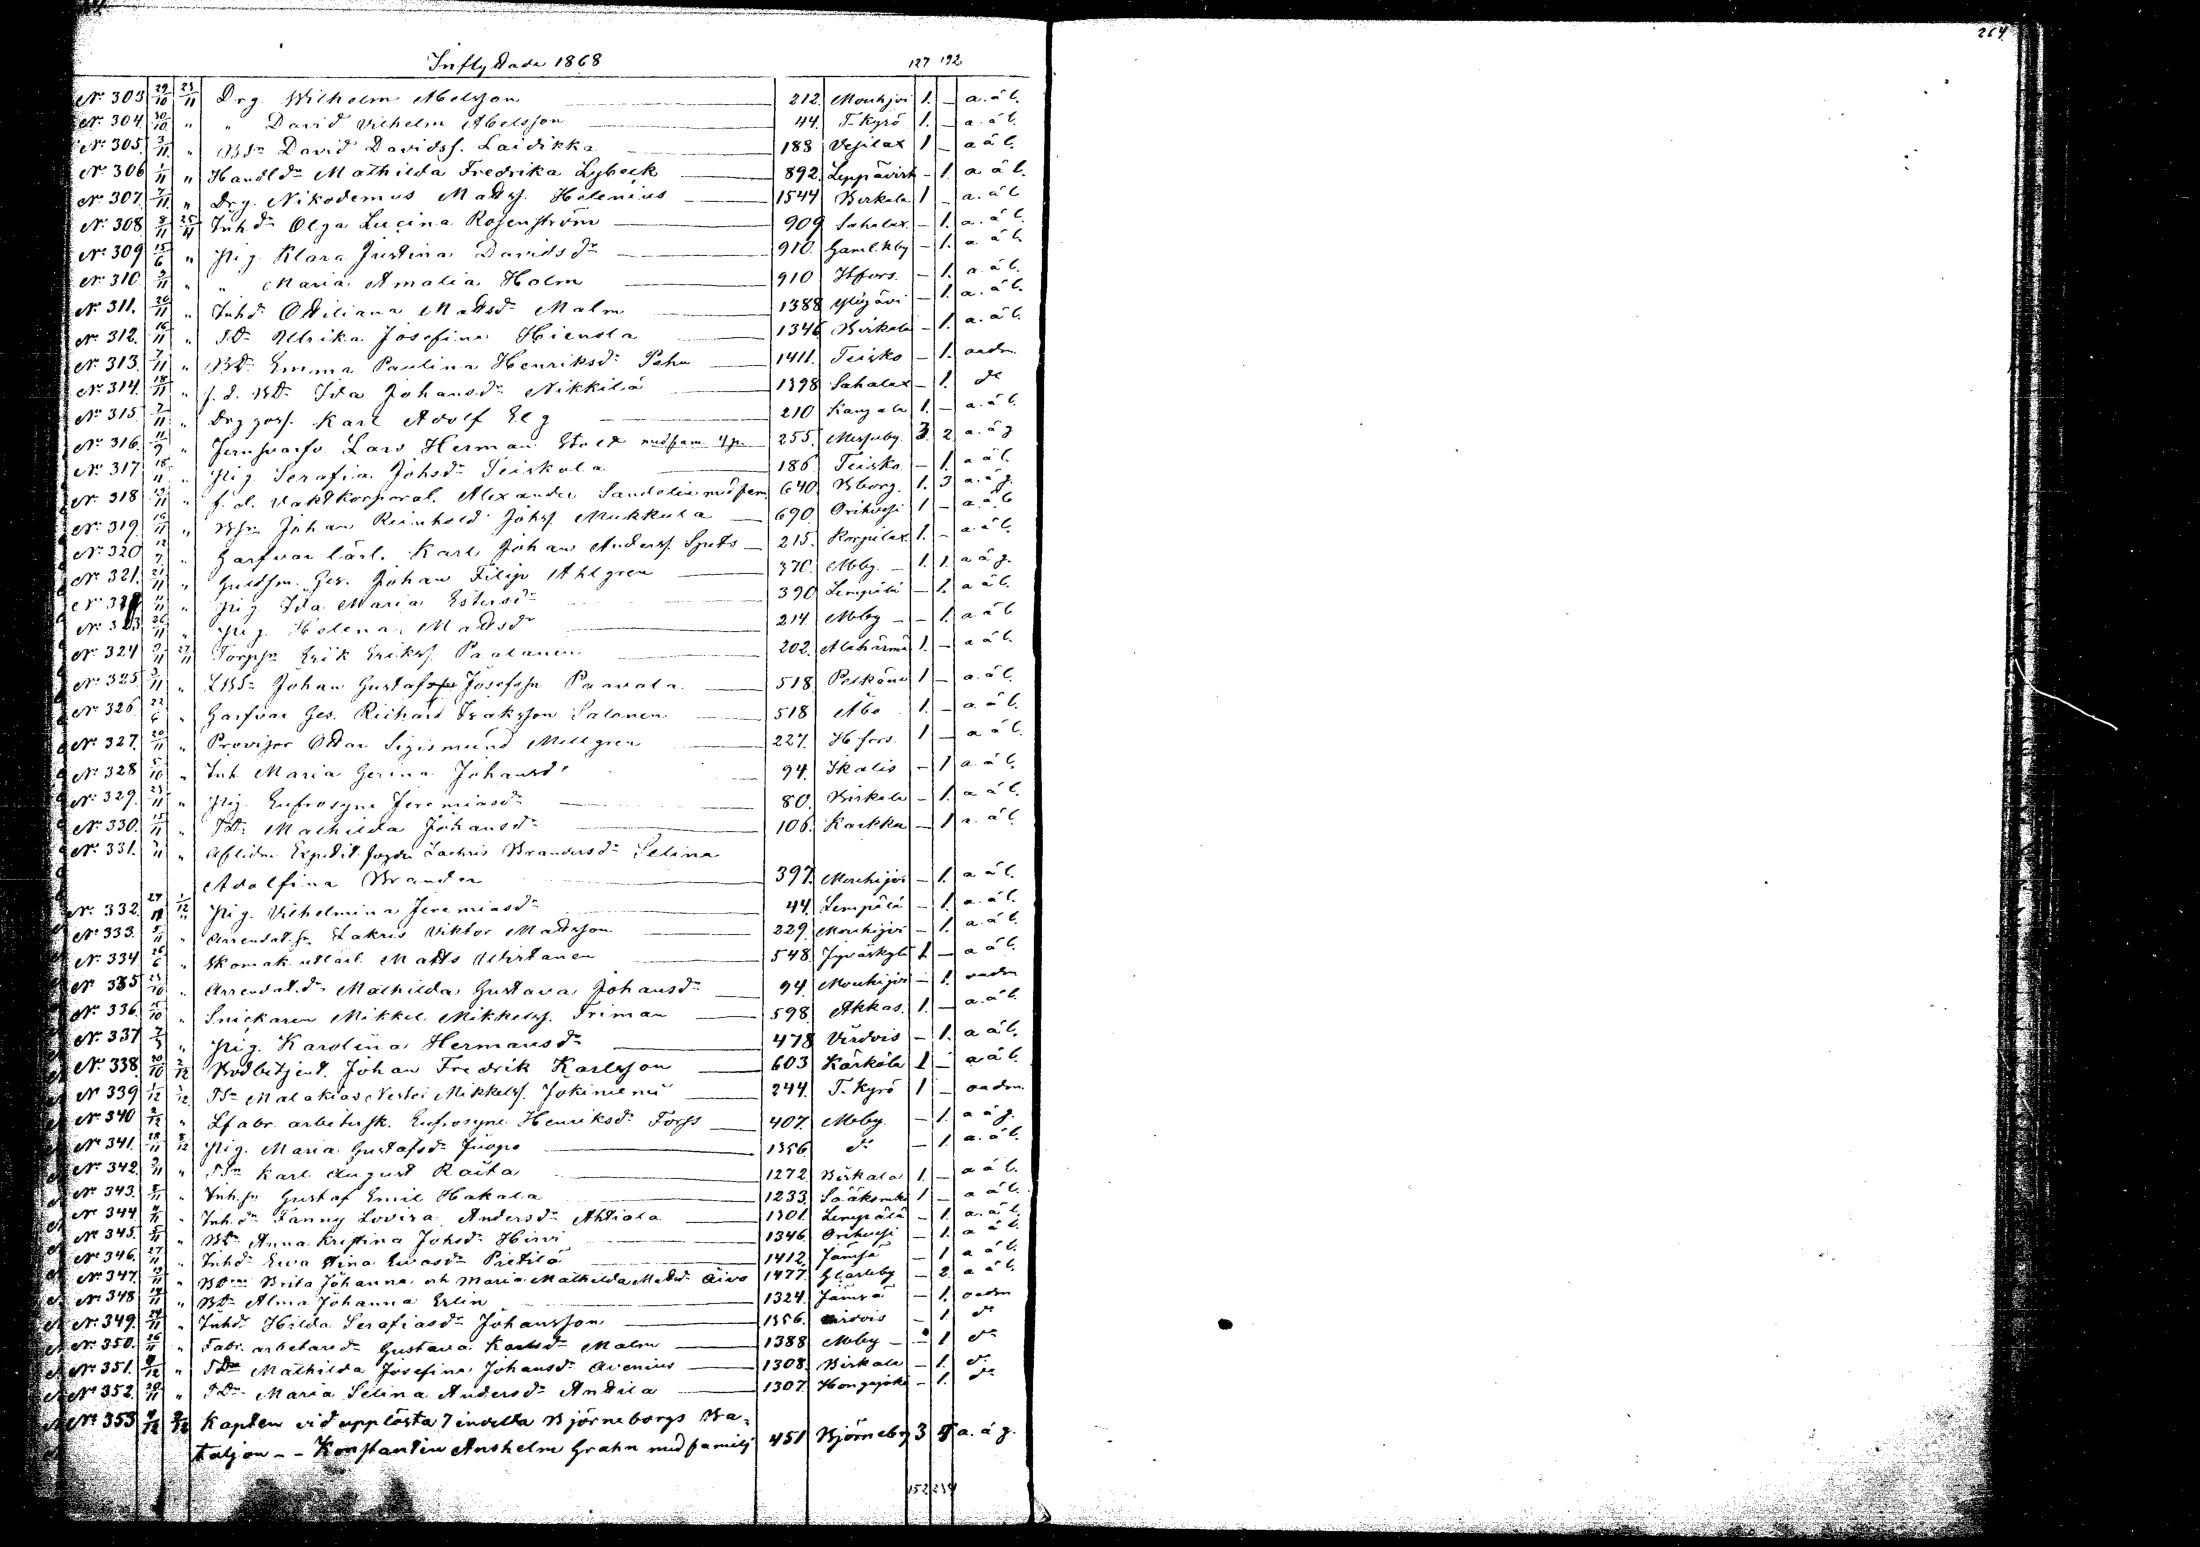 264
Inflyttade 1868 127 192
No 303 29/10 23/11 Drg. Wilhelm Abelsson 212. Mouhijvi 1. – a. á b.
No 304 30/10 " " David Vilhelm Abelsson 44. T-Kyrö 1. – a. á b.
No 305 3/11 " BSn David Davidss. Laidikka 188 Vesilax 1 – a á b.
No 306 1/11 " Handl.dr Mathilda Fredrika Lybeck 892. Leppävirt – 1. a á b.
No 307. 7/11 " Drg. Nikodemus Matss. Helenius 1544 Birkala 1 – a. á b
No 308 8/11 25/11 Inhdr Olga Lucina Rosenström 909 Sahalax. – 1. a. á b.
No 309 15/6 " Pig. Klara Justina Davidsdr 910. Gamlkby – 1. a á b.
No 310 2/11 " " Maria Amalia Holm 910 Hfors. – 1. a. á b.
No 311. 20/11 " Inhdr Ottiliana Matsdr Malm 1388 Ylöjävi – 1. a. á b.
No 312. 16/11 " TDr Ulrika Josefina Hiensla 1346 Birkala – 1. a. á b.
No 313. 7/11 " BDr Emma Paulina Henriksdr Pehu 1411. Teisko – 1. oadm.
No 314. 18/11 " f. d. BDr Ida Johansdr Nikkilä 1398 Sahalax – 1. do
No 315 7/11 " Drggoss. Karl Adolf Elg 210 Kangala 1. – a. á b.
No 316. 11/9 " Lars Herman med fam. 255. Messuby 3. 2 a. á g
No 317 18/11 " Pig. Serafia Johsdr Teiskola 186 Teisko – 1. a á b.
No 318 19/11 " f. d. Vaktkorporal. Alexander Sandelin med fam. 640. Wborg. 1. 3 a. á g.
No 319. 16/11 " BSn Johan Reinhold Johss. Mukkula 690 Orihvesi 1 – a. á b
No 320 12/7 " Garfvar lärl. Karl Johan Anderss. Spets 215. Korpilax. 1. – a. á b.
No 321. 21/11 " Guldsm. Ges. Johan Filip Ahlgren 370. Mby. – 1. 1. a á g.
No 322 11/11 " Pig. Ida Maria Estersdr 390 Lempälä – 1. a á b.
No 323 26/11 " Pig. Helena Matsdr 214. Mby – – 1. a á b
No 324 9/11 27/11 Torpsn Erik Erikss. Paalanen 202. Alahärmä 1. – a á b.
No 325 3/11 " LBSn Johan Gustaf Josefsn Paavola 518 Pelkäne 1 – a. á b.
No 326 22/6 " Garfvar Ges. Richard Isaksson Salonen 518 Åbo 1. – a. á b.
No 327. 20/11 " Provisor Ottar Sigismund Mellgren 227. Hfors. 1 – a á b.
No 328 5/10 " Inh. Maria Gerina Johansdr 94. Ikalis – 1 a. á b.
No 329. 23/11 " Pig. Eufrosyne Jeremiasdr 80. Birkala – 1. a á b.
No 330. 15/11 " TDr Mathilda Johansdr 106. Karkku – 1 a. á b.
No 331. 9/11 " Aflidne Expedit. Zachris Brandersdr Selina
Adolfina Brander 397. Mouhijvi – 1. a á b.
No 332. 27/11 1/12 Pig. Vilhelmina Jeremiasdr 44. Lempälä – 1. a. á b.
No 333. 5/11 " Arrendat.sn Zakris Viktor Mattsson 229. Mouhijvi – 1. a á b.
No 334. 26/6 " Skomak. utlärl. Matts Uhrtanen 548. Jyväskylä 1. – a á b.
No 335 23/10 " Arrendat.dr Mathilda Gustava Johansdr 94. Mouhijvi – 1. oadm
No 336. 15/10 " Snickaren Mikkel Mikkelss. Friman 598. Akkas. 1. – a. á b.
No 337 7/3 " Pig. Karolina Hermansdr 478 Virdois – 1. a á b.
No 338. 20/10 2/12 Bodbetjent. Johan Fredrik Karlsson 603 Kärkölä 1 – a á b.
No 339 1/12 2/12 TSn Malakias Nestor Mikkelss. Jokiniemi 244. T. Kyrö 1 – oadm.
No 340 2/12 " Lfabr. arbetersk. Eufrosyne Henriksdr Forss 407. Mby. – 1. a á g.
No 341. 28/11 8/12 Pig. Maria Gustafsdr Juopo 1356. do – 1. a. á b.
No 342. 9/11 " TSn Karl August Raita 1272 Birkala 1. – a á b.
No 343. 8/11 " Inh.sn Gustaf Emil Hakala 1233. Sääksmäki 1 – a á b.
No 344 4/11 " Inh.dr Fanny Lovisa Andersdr Ahtiala 1301. Lempälä – 1. a. á b.
No 345. 5/11 " BDr Anna Kristina Johsdr Hirvi 1346. Orihvesi – 1. a á b.
No 346. 27/11 " Inhdr Eva Stina Evasdr Pietilä 1412. Jämsä – 1 a á b.
No 347. 19/11 " BDrar Brita Johanna och Maria Mathilda Matsdr Äivo 1477. Glkarleby – 2. a á b.
No 348 14/11 " BDr Alma Johanna Erlin 1324. Jämsä – 1. oadm
No 349. 24/11 " Inhdr Hilda Serafiasdr Johansson 1356. Virdois – 1 do
No 350. 16/11 " Fabr. arbetaredr Gustava Karlsdr Malm 1388 Mby – – 1 do
No 351. 2/12 " TDr Mathilda Josefina Johansdr Avenius 1308. Birkala – 1. do
No 352. 20/11 " TDr Maria Selina Andersdr Anttila 1307. Hongojoki – 1. do
No 353 9/12 9/12 Kapten vid upplösta 7 indelta Björneborgs Ba-
taljon – – Konstantin Anshelm Grahn med familj 451 Björnebg 3 5 a. á g.
152 234